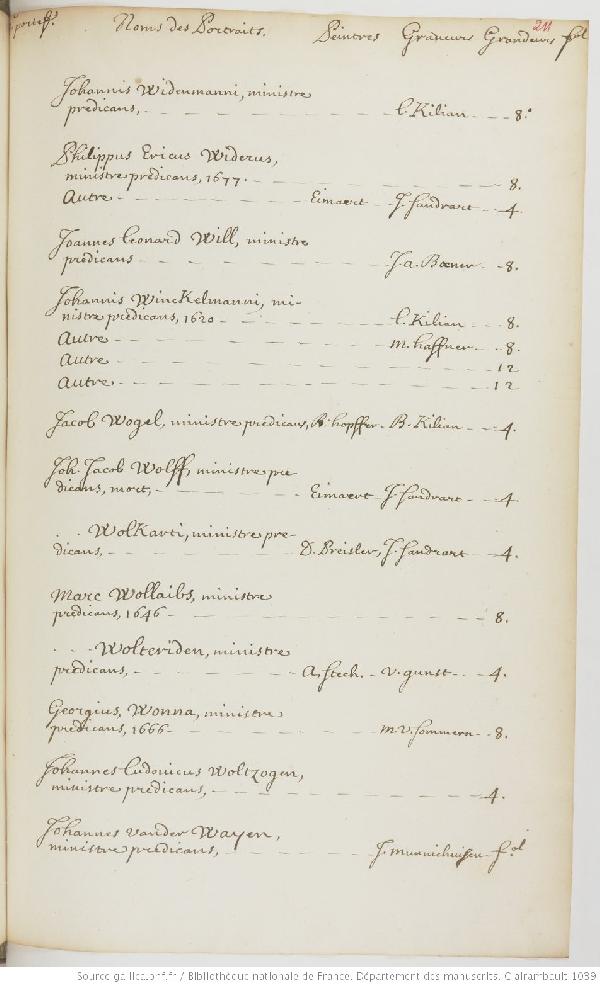 211
portef.^s Noms des Portraits. Peintres Graveurs Grandeurs fol
Johannis Widenmanni, ministre
predicans, - - - - - - - - l. Kilian - - - 8.°
Philippus Ericus Widerus,
ministre predicans, 1677. - - - - - - - 8.
Autre - - - - - - Eimaert - J. Sandrart - 4.
Joannes Leonard Will, ministre
predicans - - - - - - - - J. a. Boener - - 8.
Johannis Winckelmanni, mi-
nistre predicans, 1620 - - - - - - l. Kilian - - - 8.
Autre - - - - - - - - - m. haffner - - 8.
Autre - - - - - - - - - - - - 12
Autre - - - - - - - - - - - - 12
Jacob Wogel, ministre predicans, B. hopffer - B. Kilian - - 4.
Joh. Jacob Wolff, ministre pre
dicans, mort, - - - - - - Eimaert - J. Sandrart - - 4
. . WolKarti, ministre pre-
dicans, - - - - - - D. Preisler, J. Sandrart - - 4.
Marc Wollaibs, ministre
predicans, 1646 - - - - - - - - - - 8.
. - - Wolteriden, ministre
predicans, - - - - - - A. Stech. - v. gunst - - 4.
Georgius, Wonna, ministre
predicans, 1666 - - - - - - - m. v. Sommern - - 8.
Johannes Ludovicus Woltzogen,
ministre predicans, - - - - - - - - - 4.
Johannes vander Wayen,
ministre predicans, - - - - - - J. munnichuisen - f.^ol
Source gallica.bnf.fr / Bibliothèque nationale de France. Département des manuscrits. Clairambault 1039